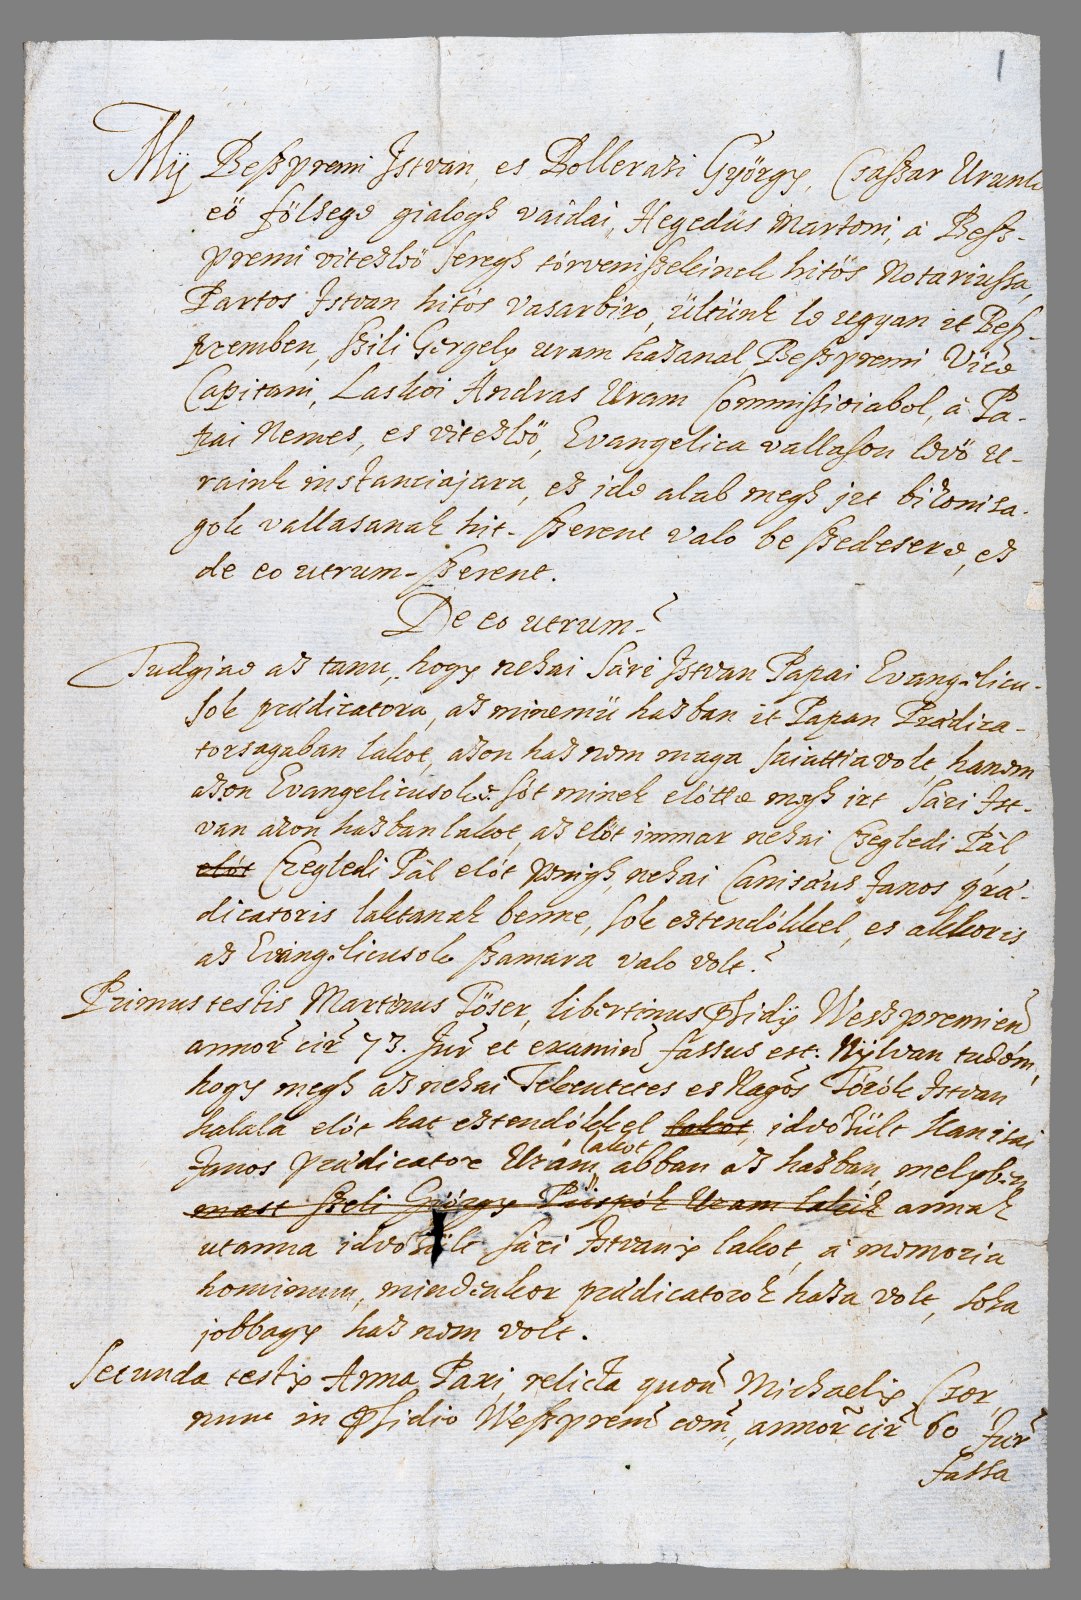 1
Mÿ Beszpremi Istvan, es Bollerazi György, Czaszar Urunk
eö fölsege gialogh vaidai, Hegedüs Martoni, à Besz-
premi vitezlöö seregh törveniszekinek hitös Notariussa,
Partos Istvan hitös vasarbiro, ültünk le ugyan it Besz-
premben, szili Gergely uram hazanal, Beszpremi Vice
Capitani, Laskoi Andras Uram Commissioiabol, à Pa-
pai Nemes, es vitezlöö, Evangelica vallason levö U-
raink instantiajara, ez ide alab megh irt bizonisa-
gok vallasanak hit-szerent valo be szedesere, ez
de eo utrum-szerent.
De eo utrum.
Tudgiae az tanu, hogy nehai Sári Istvan Papai Evangelicu-
sok prædicatora, az minemü hazban it Papan Prædica-
torsagaban lakot, azon haz nem maga saiattia volt, hanem
azon Evangelicusoke. söt minek elötte megh irt Sári Ist-
van azon hazban lakot, az elöt immar nehai Czegledi Pál,
elöt Czegledi Pál elöt penigh, nehai Canisæus Janos præ-
dicatoris laktanak benne, sok esztendökkel, es akkoris
az Evangelicusok szamara valo volt.
Primus testis Martinus Töser, libertinus Psidÿ Weszpremien
annor cir 73. Jur et examin fassus est: Nÿlvan tudom,
hogy megh az nehai Tekentetes es Nagos Török Istvan
halala elöt hat esztendökkel lakot, idvözült Kanisai
Janos prædicator Urám lakot abban az hazban, melyben
mast Szeli György Püspök Uram lakik annak
utanna idvözült Sári Istvanis lakot, à memoria
hominum, mindenkor prædicatorok haza volt, soha
jobbagy haz nem volt.
Secunda testis Anna Paxi, relicta quon Michaelis Czor,
nunc in Psidio Weszprem com, annor cir 60 Jur
fassa